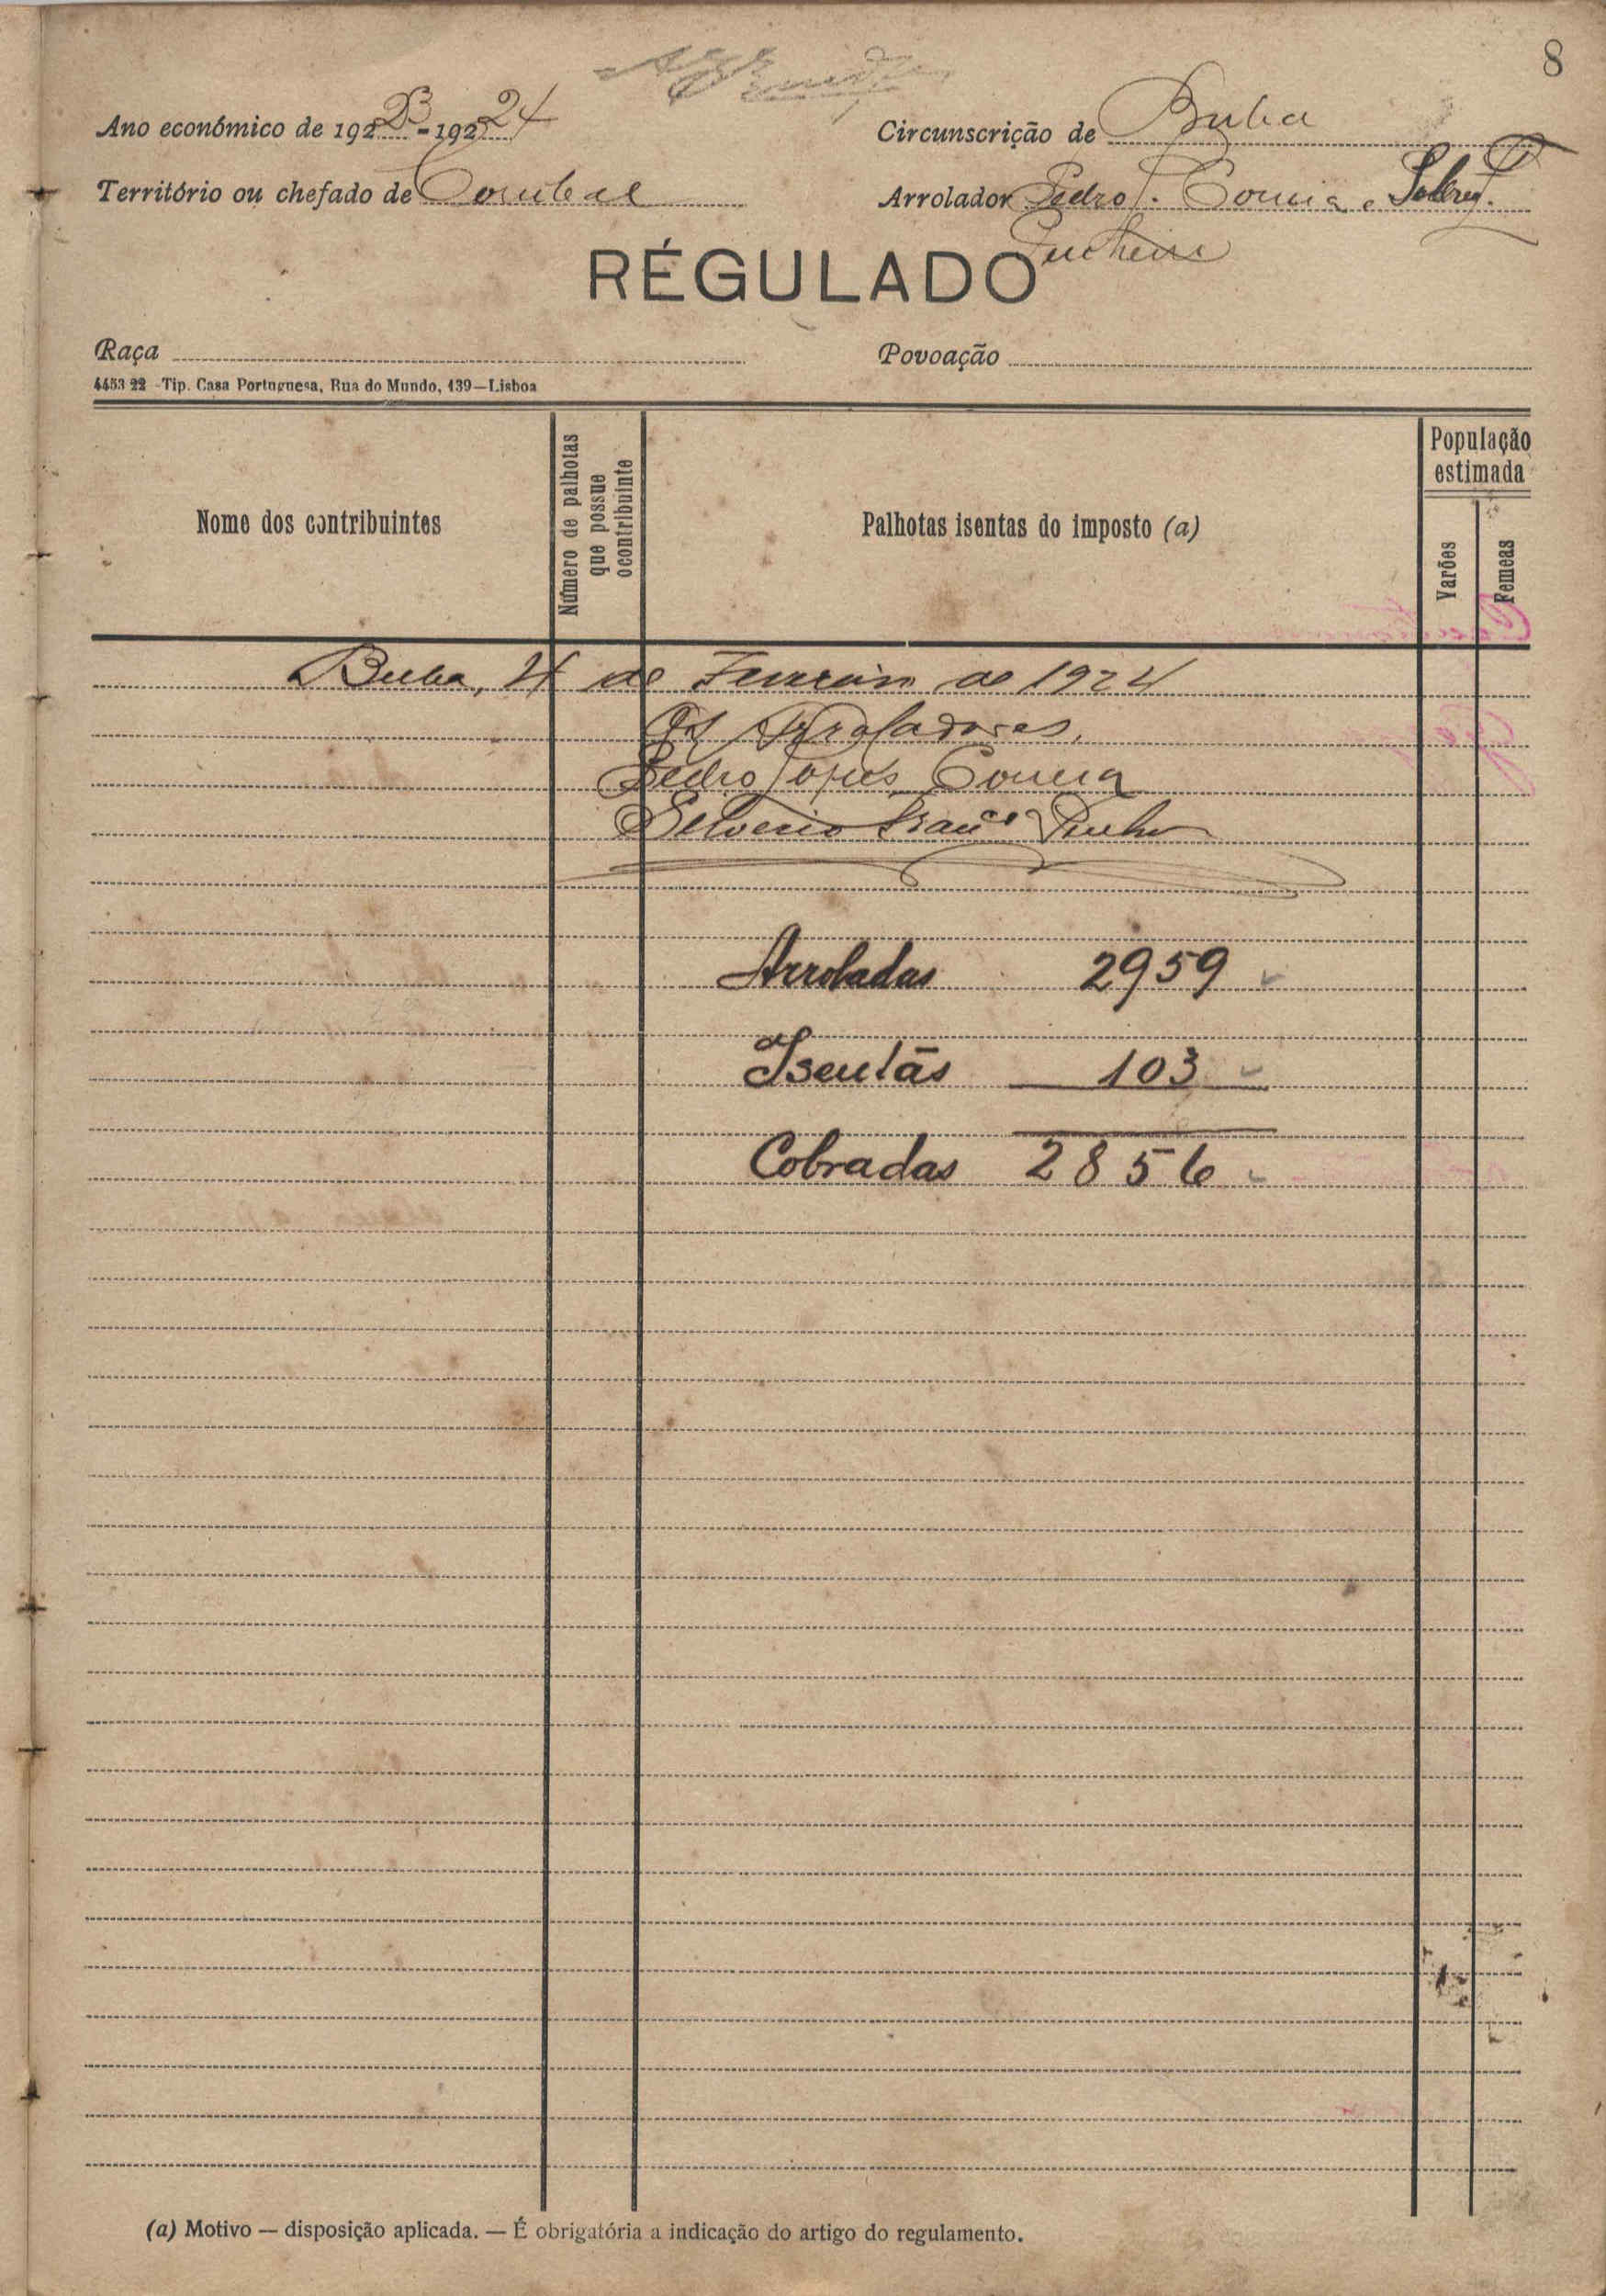 8
Ano económico de 1923-1924
Circunscrição de Buba
Território ou chefado de Corubal
Arrolador Pedro L. Correia e
RÉGULADO
Raça
Povoação
4453 22 -Tip. Casa Portuguesa, Rua do Mundo, 139—Lisboa
Nome dos contribuintes
Número de palhotas que possue o contribuinte
Palhotas isentas do imposto (a)
População estimada
Varões
Femeas
Buba, de Fevereiro de 1924
Os Arroladores,
Pedro Lopes Correia
Silverio
Arroladas 2959
Isentas 103
Cobradas 2856
(a) Motivo — disposição aplicada. — É obrigatória a indicação do artigo do regulamento.